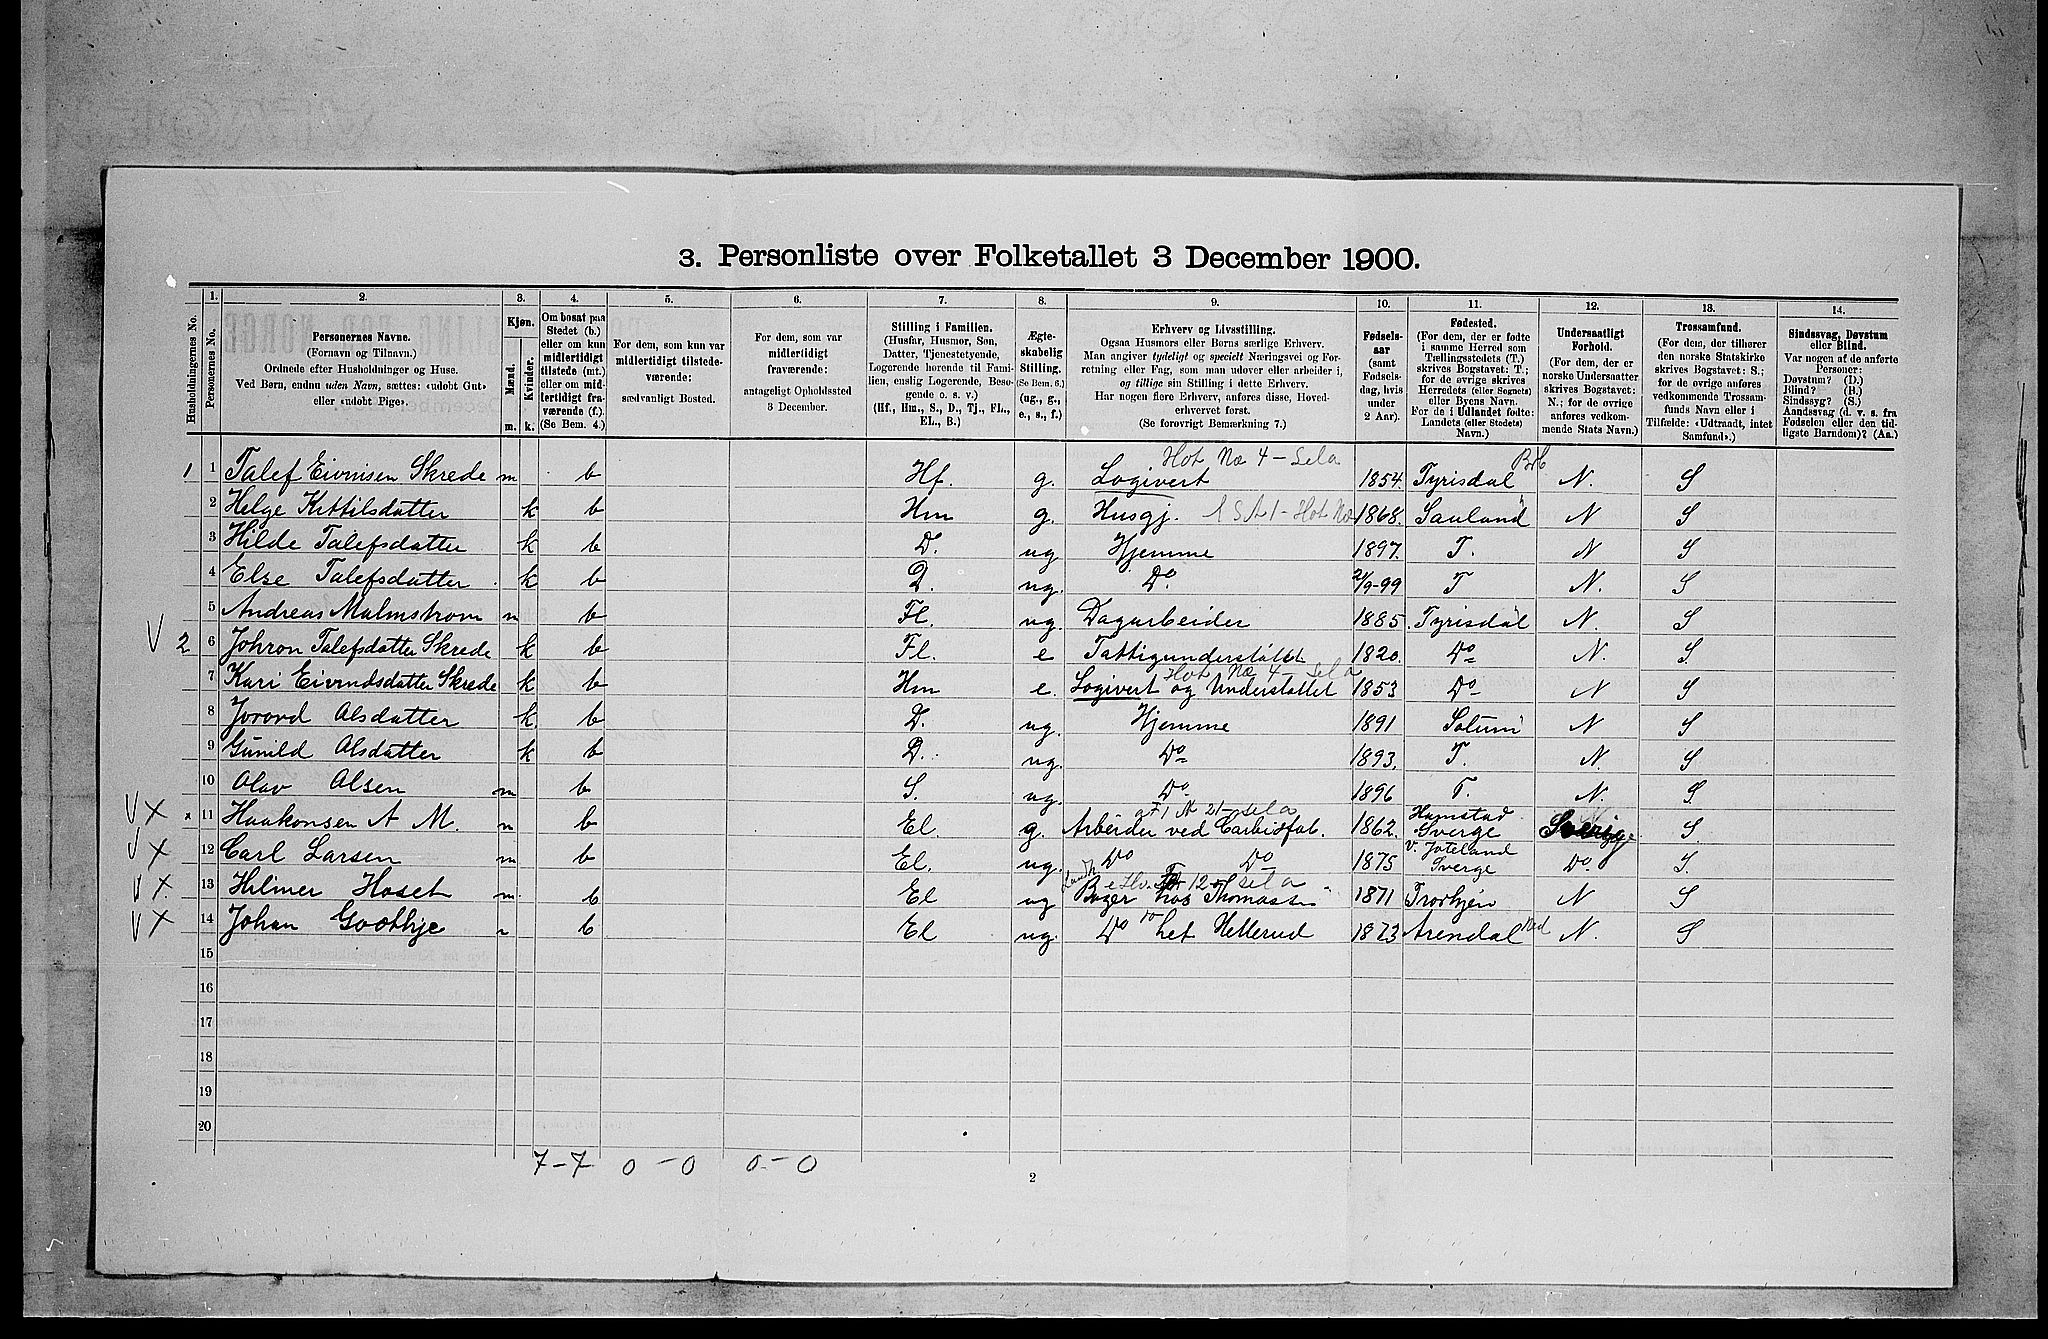 3. Personliste over Folketallet 3 December 1900.
Husholdningernes No.
1. Personernes No.
2. Personernes Navne. (Fornavn og Tilnavn.) Ordnede efter Husholdninger og Huse. Ved Børn, endnu uden Navn, sættes: «udøbt Gut» eller «udøbt Pige».
3. Kjøn. Mænd. Kvinder. m. k.
4. Om bosat paa Stedet (b.) eller om kun midlertidigt tilstede (mt.) eller om midlertidigt fraværende (f.). (Se Bem. 4.)
5. For dem, som kun var midlertidigt tilstedeværende: sædvanligt Bosted.
6. For dem, som var midlertidigt fraværende: antageligt Opholdssted 3 December.
7. Stilling i Familien. (Husfar, Husmor, Søn, Datter, Tjenestetyende, Logerende hørende til Familien, enslig Logerende, Besøgende o. s. v.) (Hf., Hm., S., D., Tj., FL., EL., B.)
8. Ægteskabelig Stilling. (Se Bem. 6.) (ug., g., e., s., f.)
9. Erhverv og Livsstilling. Ogsaa Husmors eller Børns særlige Erhverv. Man angiver tydeligt og specielt Næringsvei og Forretning eller Fag, som man udøver eller arbeider i, og tillige sin Stilling i dette Erhverv. Har nogen flere Erhverv, anføres disse, Hovederhvervet først. (Se forøvrigt Bemærkning 7.)
10. Fødselsaar (samt Fødselsdag, hvis under 2 Aar).
11. Fødested. (For dem, der er fødte i samme Herred som Tællingsstedets (T.) skrives Bogstavet: T.; for de øvrige skrives Herredets (eller Sognets) eller Byens Navn. For de i Udlandet fødte: Landets (eller Stedets) Navn.)
12. Undersaatligt Forhold. (For dem, der er norske Undersaatter skrives Bogstavet: N.; for de øvrige anføres vedkommende Stats Navn.)
13. Trossamfund. (For dem, der tilhører den norske Statskirke skrives Bogstavet: S.; for de øvrige anføres vedkommende Trossamfunds Navn eller i Tilfælde: «Udtraadt, intet Samfund».)
14. Sindssvag, Døvstum eller Blind. Var nogen af de anførte Personer: Døvstum? (D.) Blind? (B.) Sindssyg? (S.) Aandssvag (d. v. s. fra Fødselen eller den tidligste Barndom)? (Aa.)
Hot No 4 - Sela
1 1 Talef Eivnisen Skrede m b Hf. g. Logivert 1854. Tyrisdal N. S
2 Helge Kittilsdatter k b Hm g. Husgj. 1868. Sauland N S
3 Hilde Talefsdatter k b D. ug Hjemme 1897. T. N S
4 Else Talefsdatter. k b D. ug. Do. 2/9-99 T N. S
5 Andreas Malmstrom m b Fl. ug. Dagarbeider 1885. Tyrisdal N. S
V 2 6 Johron Talefsdatter Skrede k b Fl. e Fattigunderstøttet 1820. Do N. S.
Hot No 4 - Sela
7 Kari Eivindsdatter Skrede k b Hm e. Logivert og Understøttet 1853 Do N S
8 Jorond Olsdatter k. b D. ug. Hjemme 1891 Solum N S
9 Gunild Olsdatter k b D. ug. Do 1893. T. N. S
10 Olav Olsen m b S. ug. Do. 1896 T. N. S.
V X x 11 Haakonsen A M. m b El. g. Arbeider ved Carbidfab. 1862. Hamstad Sverge Sverige S.
V X 12 Carl Larsen m b El. ug. Do Do 1875 V. Joteland Sverge Do. S.
V X. 13 Hilmer Hoset m. b El ug Bager hos Thomassen 1871 Trorhjen N S
V X 14 Johan Goothje b El ug. Do Hellerud 1873 Arendal N. S
15
16
17
18
19
20
7 - 7 0 - 0 0 - 0
2